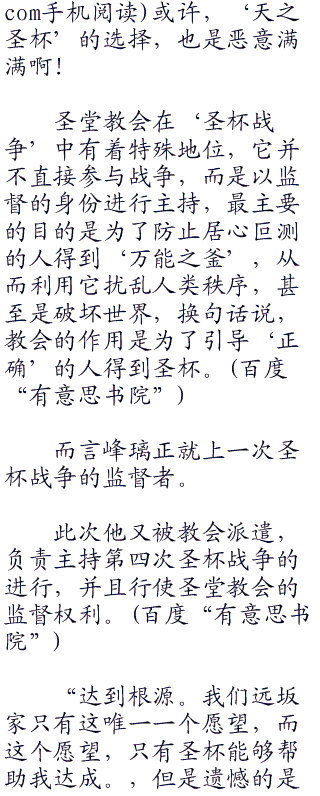 com手机阅读)或许，‘天之
圣杯’的选择，也是恶意满
满啊！
圣堂教会在‘圣杯战
争’中有着特殊地位，它并
不直接参与战争，而是以监
督的身份进行主持，最主要
的目的是为了防止居心叵测
的人得到‘万能之釜’，从
而利用它扰乱人类秩序，甚
至是破坏世界，换句话说，
教会的作用是为了引导‘正
确’的人得到圣杯。(百度
“有意思书院”)
而言峰璃正就上一次圣
杯战争的监督者。
此次他又被教会派遣，
负责主持第四次圣杯战争的
进行，并且行使圣堂教会的
监督权利。(百度“有意思书
院”)
“达到根源。我们远坂
家只有这唯一一个愿望，而
这个愿望，只有圣杯能够帮
助我达成。，但是遗憾的是